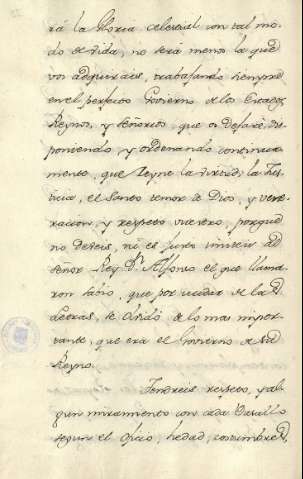 rá la Gloria celestial con tal mo-
do de vida, no será menos la que
vos adquiráis, trabajando siempre
en el perfecto Govierno de los Estados,
Reynos, y Señoríos, que os dejaré, dis-
poniendo, y ordenando continua-
mente, que Reyne la virtud, la Jus-
ticia, el Santo temor de Dios, y vene-
racion, y respeto vuestro, porque
no debeis, ni es justo imiteis al
Señor Rey Dn. Alfonso el que llama-
ron Sabio, que por cuidar de las
Letras, se olvidó de lo mas impor-
tante, que era el Govierno de su
Reyno.
Tendreis respeto, y al-
gun miramiento con cada Vasallo
segun el oficio, hedad, costumbres,